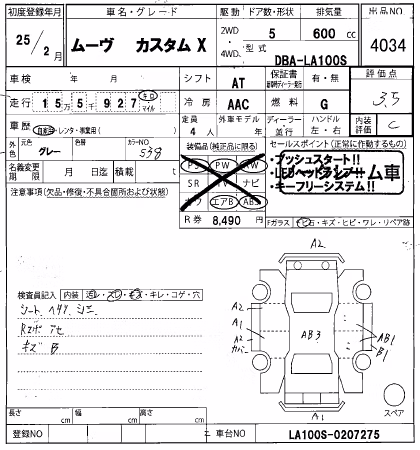 初度登録年月
車名・グレード
駆動
ドア数・形状
排気量
出品NO
25/2月
ムーヴ カスタムX
2WD
4WD.
5
600 cc
4034
型式
DBA-LA100S
車検 年 月
シフト
AT
保証書
有・無
評価点
3.5
走行 15万5千927 キロ マイル
冷房
AAC
燃料
G
車歴
自家用・レンタ・事業用( )
定員
4 人
外車モデル
年
ディーラー
並行
ハンドル
左・右
内装
評価
C
外色
元色
グレー
色替
カラーNO
538
装備品(純正品に限る)
セールスポイント(正常に作動するもの)
PS PW AW
SR TV ナビ
カワ エアB ABS
・プッシュスタート!!
・LEDヘッドランプ!!
・キーフリーシステム!!
ム車
名義変更
期限
月 日迄
積載 t
R券 8,490 円
注意事項(欠品・修復・不具合箇所および状態)
Fガラス
石・キズ・ヒビ・ワレ・リペア跡
検査員記入
内装
キレ・コゲ・穴
シート
キズ B
A2
A2
A1
A2
カバー
AB3
AB1
B1
A1
スペア
長さ cm
幅 cm
高さ cm
登録NO
車台NO
LA100S-0207275